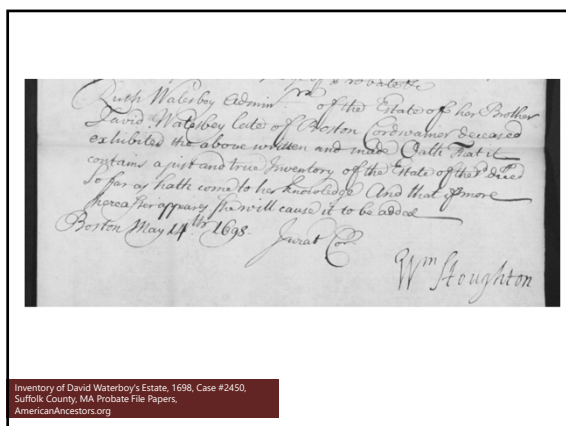 of Probate &c
Ruth Watesbey Admin:rx of the Estate of her Brother
David Watesbey late of Boston Cordwainer deceased
exhibited the above written and made Oath That it
contains a just and true Inventory of the Estate of the sd deced
So far as hath come to her knowledge And that if more
hereafter appears She will cause it to be added
Boston May 14th 1698. Jurat Cor
Wm Stoughton
Inventory of David Waterboy's Estate, 1698, Case #2450,
Suffolk County, MA Probate File Papers,
AmericanAncestors.org